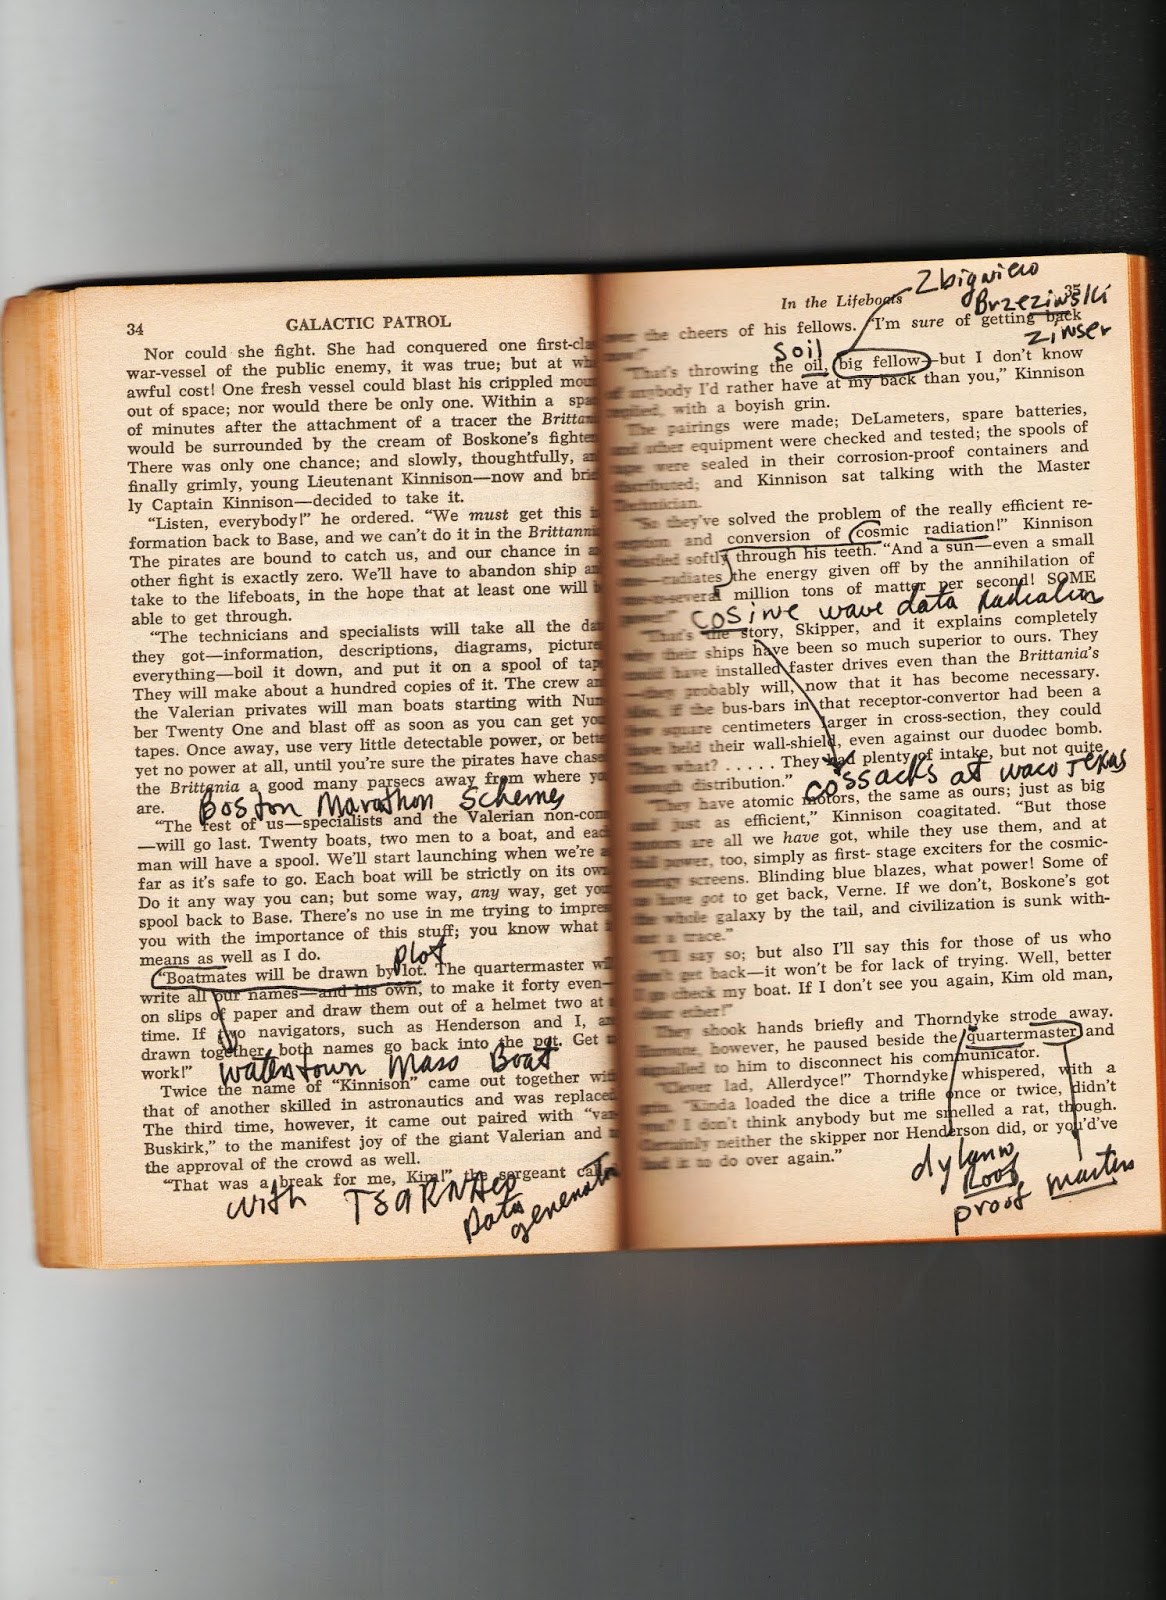 34
GALACTIC PATROL
Nor could she fight. She had conquered one first-cla
war-vessel of the public enemy, it was true; but at wh
awful cost! One fresh vessel could blast his crippled mou
out of space; nor would there be only one. Within a spa
of minutes after the attachment of a tracer the Brittan
would be surrounded by the cream of Boskone's fighte
There was only one chance; and slowly, thoughtfully, a
finally grimly, young Lieutenant Kinnison—now and brie
ly Captain Kinnison—decided to take it.
"Listen, everybody!" he ordered. "We must get this i
formation back to Base, and we can't do it in the Brittanni
The pirates are bound to catch us, and our chance in a
other fight is exactly zero. We'll have to abandon ship a
take to the lifeboats, in the hope that at least one will b
able to get through.
"The technicians and specialists will take all the da
they got—information, descriptions, diagrams, picture
everything—boil it down, and put it on a spool of tap
They will make about a hundred copies of it. The crew an
the Valerian privates will man boats starting with Num
ber Twenty One and blast off as soon as you can get yo
tapes. Once away, use very little detectable power, or bette
yet no power at all, until you're sure the pirates have chase
the Brittania a good many parsecs away from where y
are.
Boston Marathon Schemes
"The rest of us—specialists and the Valerian non-com
—will go last. Twenty boats, two men to a boat, and eac
man will have a spool. We'll start launching when we're a
far as it's safe to go. Each boat will be strictly on its own
Do it any way you can; but some way, any way, get you
spool back to Base. There's no use in me trying to impres
you with the importance of this stuff; you know what i
means as well as I do.
Plot
"Boatmates will be drawn by lot. The quartermaster wi
write all our names—and his own, to make it forty even—
on slips of paper and draw them out of a helmet two at
time. If two navigators, such as Henderson and I, a
drawn together, both names go back into the pot. Get
work!"
Watertown Mass Boat
Twice the name of "Kinnison" came out together wit
that of another skilled in astronautics and was replaced
The third time, however, it came out paired with "van
Buskirk," to the manifest joy of the giant Valerian and
the approval of the crowd as well.
"That was a break for me, Kim!" the sergeant call
with TSARNAEV
Data
generator
Zbigniew
Brzezinski
Zinser
In the Lifeboats
35
over the cheers of his fellows. "I'm sure of getting back
now!"
Soil
"That's throwing the oil, big fellow—but I don't know
of anybody I'd rather have at my back than you," Kinnison
replied, with a boyish grin.
The pairings were made; DeLameters, spare batteries,
and other equipment were checked and tested; the spools of
tape were sealed in their corrosion-proof containers and
distributed; and Kinnison sat talking with the Master
Technician.
"So they've solved the problem of the really efficient re-
ception and conversion of cosmic radiation!" Kinnison
whistled softly through his teeth. "And a sun—even a small
one—radiates the energy given off by the annihilation of
one-to-several million tons of matter per second! SOME
power!"
cosine wave data Radiation
"That's the story, Skipper, and it explains completely
why their ships have been so much superior to ours. They
could have installed faster drives even than the Brittania's
—they probably will, now that it has become necessary.
Also, if the bus-bars in that receptor-convertor had been a
few square centimeters larger in cross-section, they could
have held their wall-shield, even against our duodec bomb.
Then what? . . . . . They had plenty of intake, but not quite
enough distribution."
cossacks at waco Texas
"They have atomic motors, the same as ours; just as big
and just as efficient," Kinnison coagitated. "But those
motors are all we have got, while they use them, and at
full power, too, simply as first- stage exciters for the cosmic-
energy screens. Blinding blue blazes, what power! Some of
us have got to get back, Verne. If we don't, Boskone's got
the whole galaxy by the tail, and civilization is sunk with-
out a trace."
"I'll say so; but also I'll say this for those of us who
don't get back—it won't be for lack of trying. Well, better
I go check my boat. If I don't see you again, Kim old man,
clear ether!"
They shook hands briefly and Thorndyke strode away.
Enroute, however, he paused beside the quartermaster and
signalled to him to disconnect his communicator.
"Clever lad, Allerdyce!" Thorndyke whispered, with a
grin. "Kinda loaded the dice a trifle once or twice, didn't
you? I don't think anybody but me smelled a rat, though.
Certainly neither the skipper nor Henderson did, or you'd've
had it to do over again."
dylann
Roof
proof masters